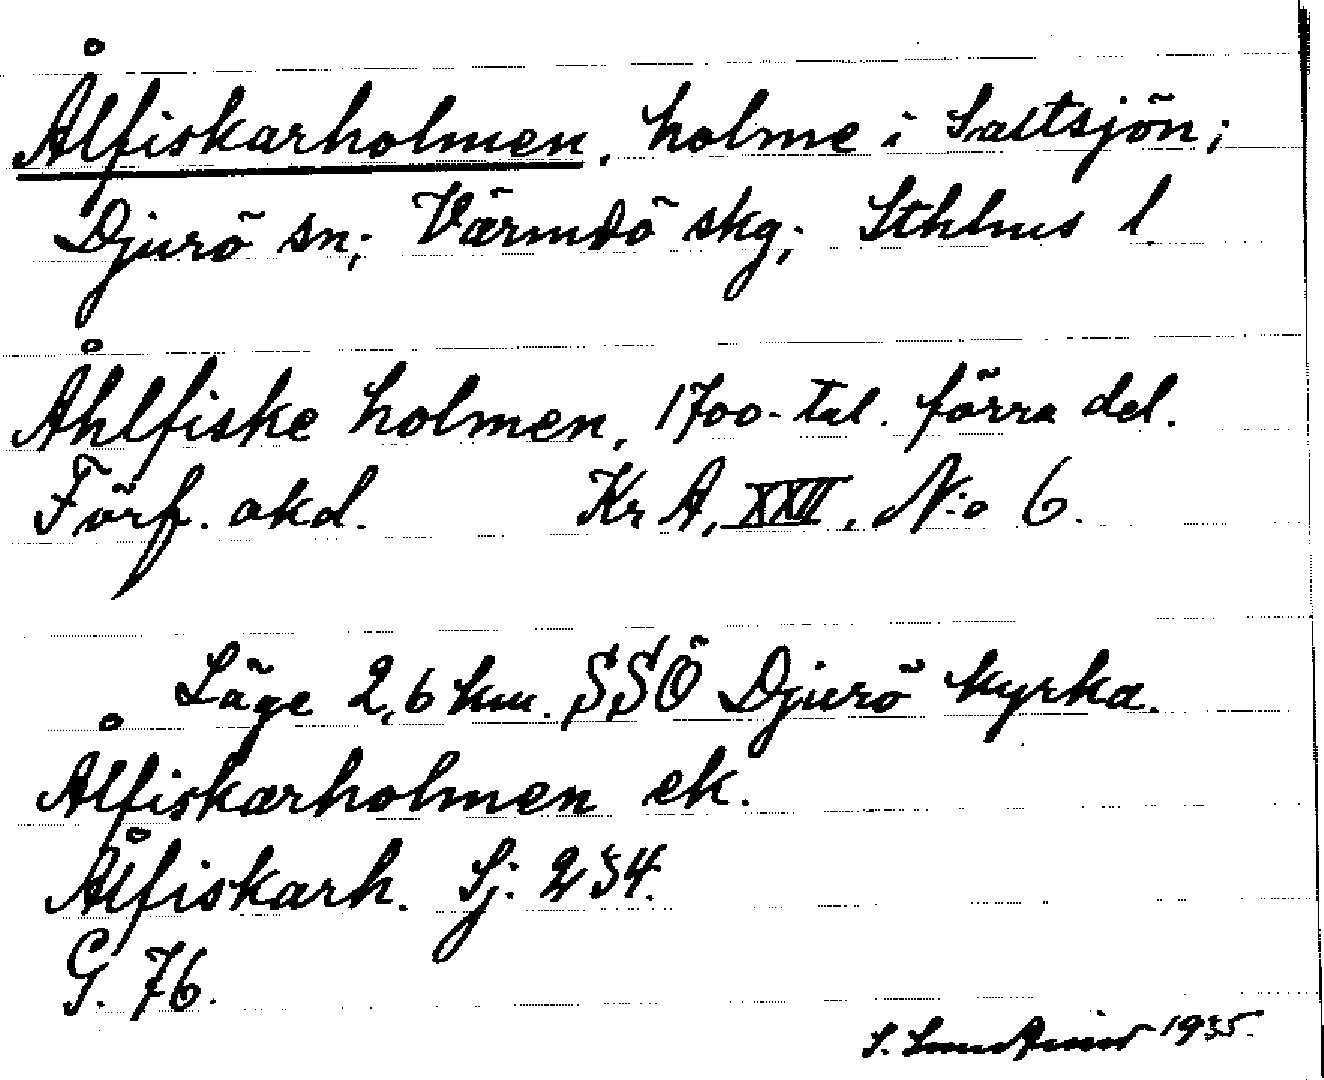 Ålfiskarholmen, holme i Saltsjön;
Djurö sn; Värmdö skg; Sthlms l.
Åhlfiske holmen, 1700-tal. förra del.
Förf. okd. Kr A, XXII, N:o 6.
Läge 2,6 km. SSÖ Djurö kyrka.
Ålfiskarholmen ek.
Ålfiskarh. Sj. 234.
G. 76.
S. 1935.